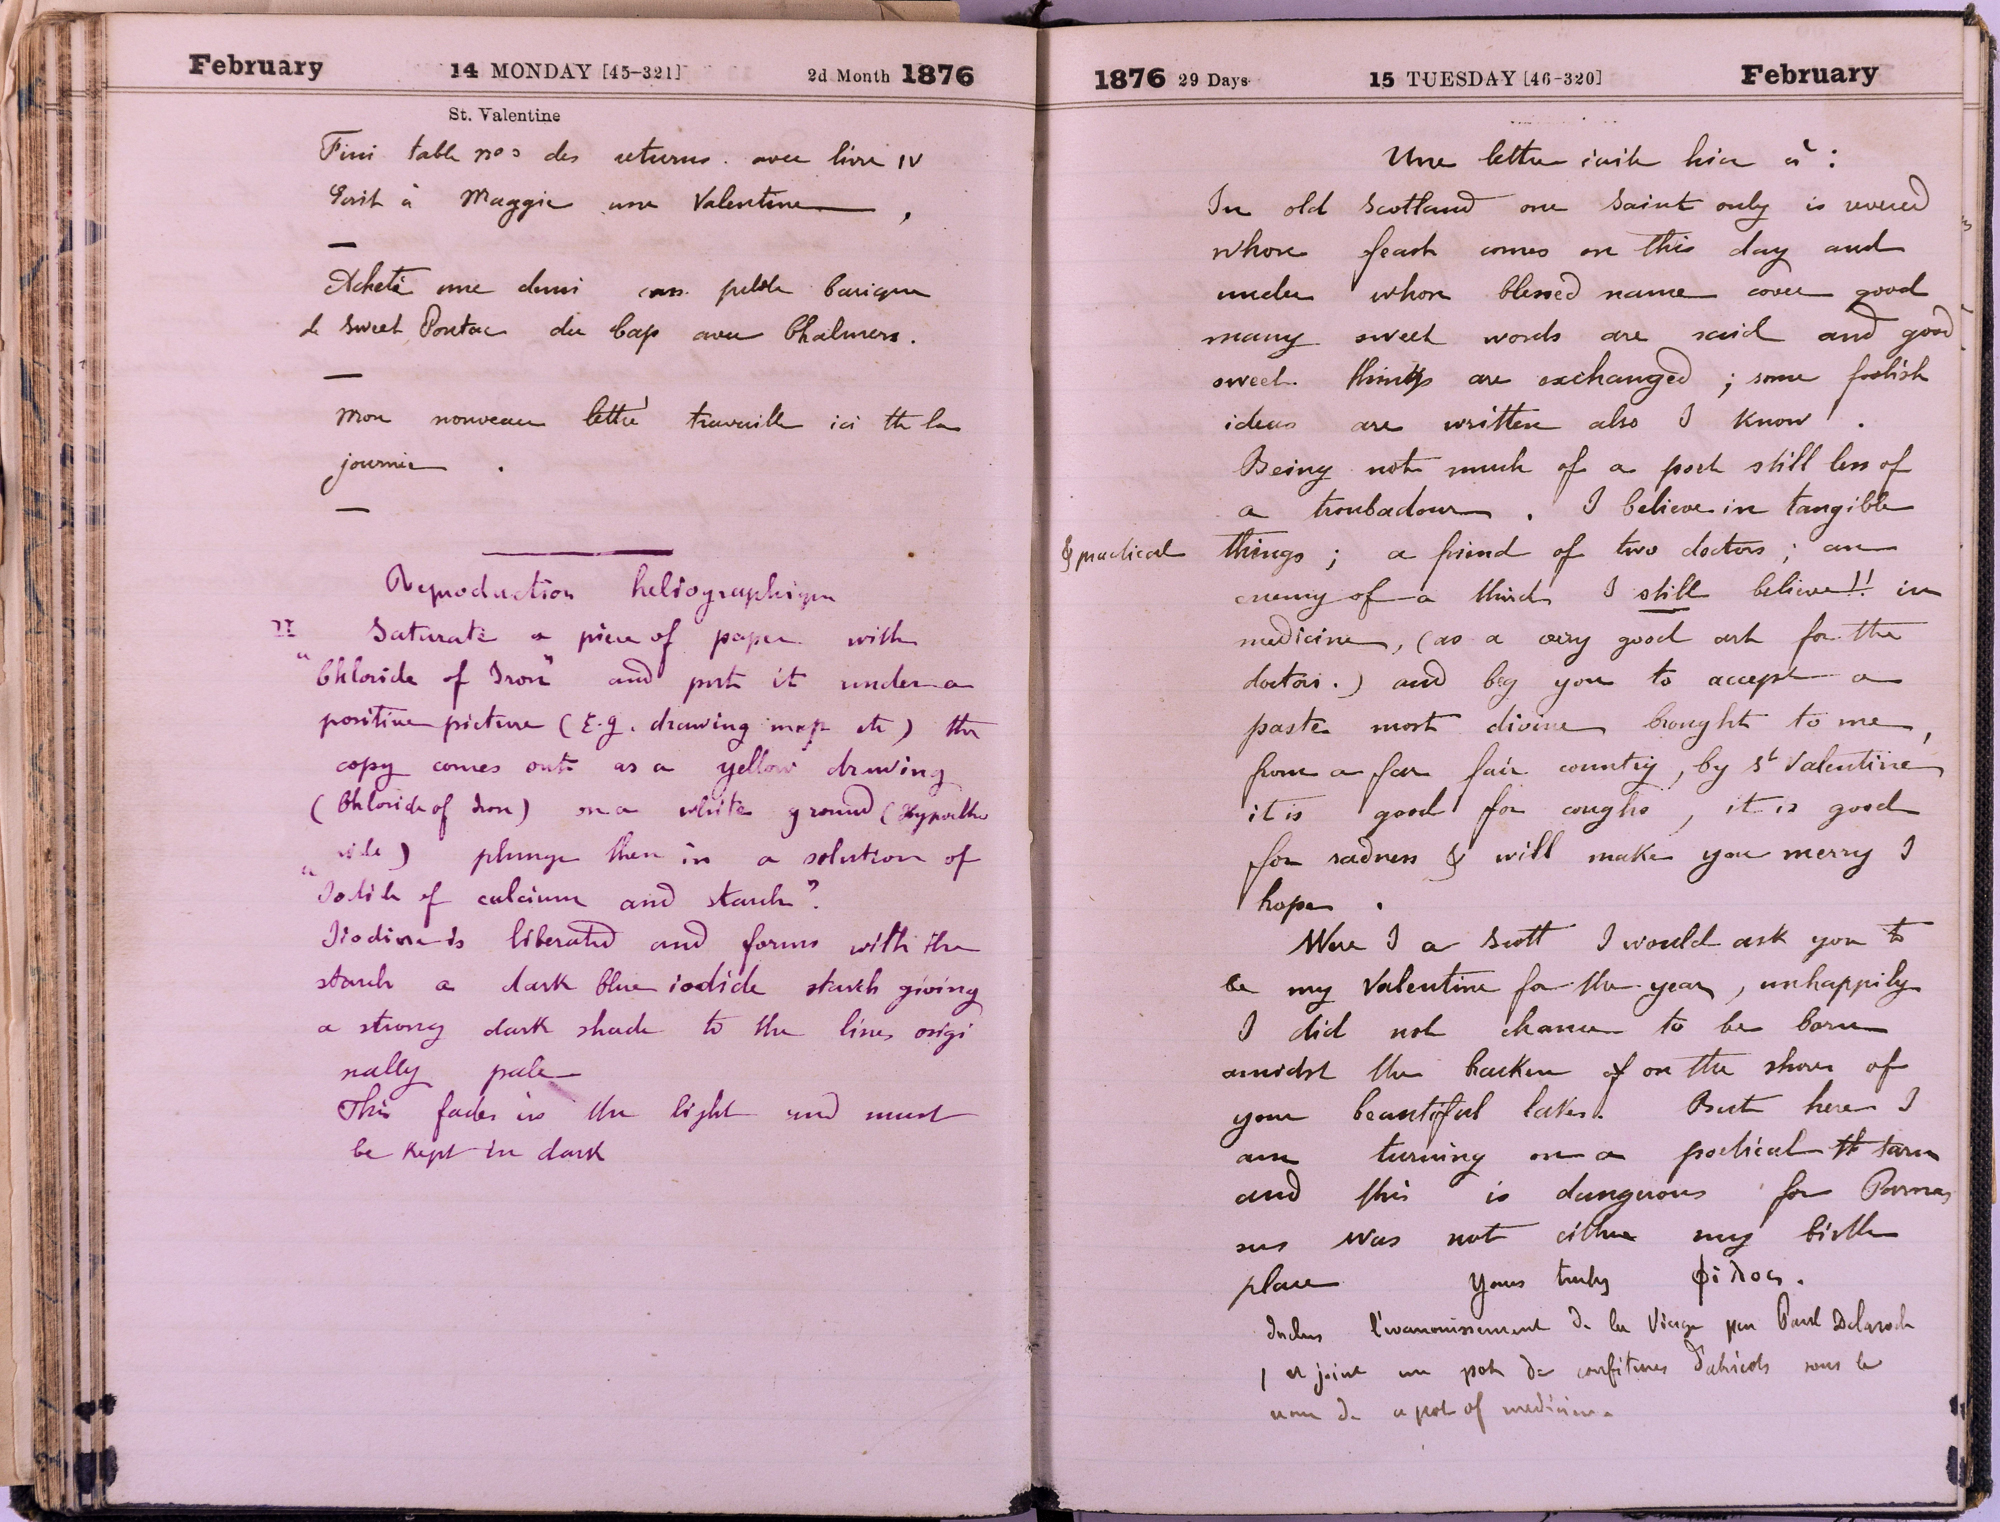 February 14 MONDAY [45-321] 2d Month 1876
St. Valentine
Fini table nos des returns avec livre IV
Ecrit à Maggie une Valentine ,
—
Acheté une demi petite barique
de Sweet Pontac du Cap avec Chalmers.
—
Mon nouveau lettré travaille ici tte la
journée .
—
Reproduction heliographique
II Saturate a piece of paper with
"Chloride of Iron" and put it under a
positive picture (E.g. drawing map etc) the
copy comes out as a yellow drawing
(Chloride of Iron) on a white ground (
) plunge then in a solution of
"Iodide of calcium and starch"
Iiodine is liberated and forms with the
starch a dark blue iodide starch giving
a strong dark shade to the lines origi
nally pale
This fades in the light and must
be kept in dark
1876 29 Days 15 TUESDAY [46-320] February
Une lettre écrite hier à :
In old Scotland one Saint only is revered
whose feast comes on this day and
under whose blessed name cover good
many sweet words are said and good
sweet things are exchanged ; some foolish
ideas are written also I know .
Being not much of a poet still less of
a troubadour . I believe in tangible
& practical things ; a friend of two doctors ; an
enemy of a third I still believe!! in
medicine, (as a very good art for the
doctors.) and beg you to accept a
paste most divine brought to me,
from a far fair country, by St Valentine
it is good for coughs , it is good
for sadness & will make you merry I
hope .
Were I a Scott I would ask you to
be my Valentine for the year, unhappily
I did not chance to be born
amidst the bracken of on the shores of
your beautiful lakes. But here I
am turning on a poetical tt tarn
and this is dangerous for Parnas
sus was not either my birth
place Yours truly φίλος.
Inclus l'évanouissement de la Vierge par Paul Delaroche
et joint un pot de confitures d'abricots sous le
nom de a pot of medicine.